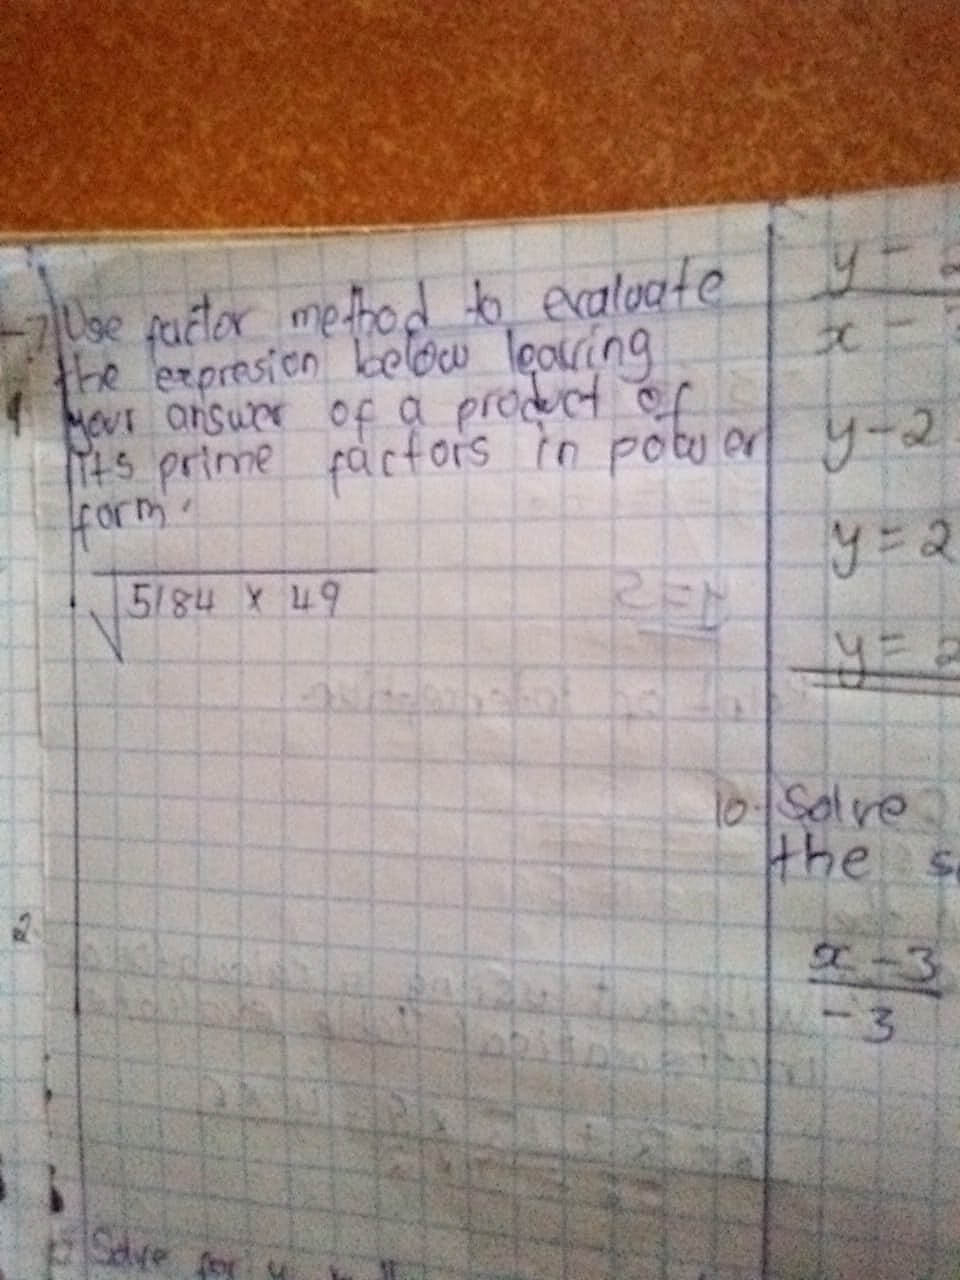 Use factor method to evaluate
the expresion below leaving
your answer of a product of
its prime factors in power
form.
√5184 x 49
y - 2
x - 3
y-2
y = 2
y = 2
10. Solve
the
x-3
-3
2
Solve for y